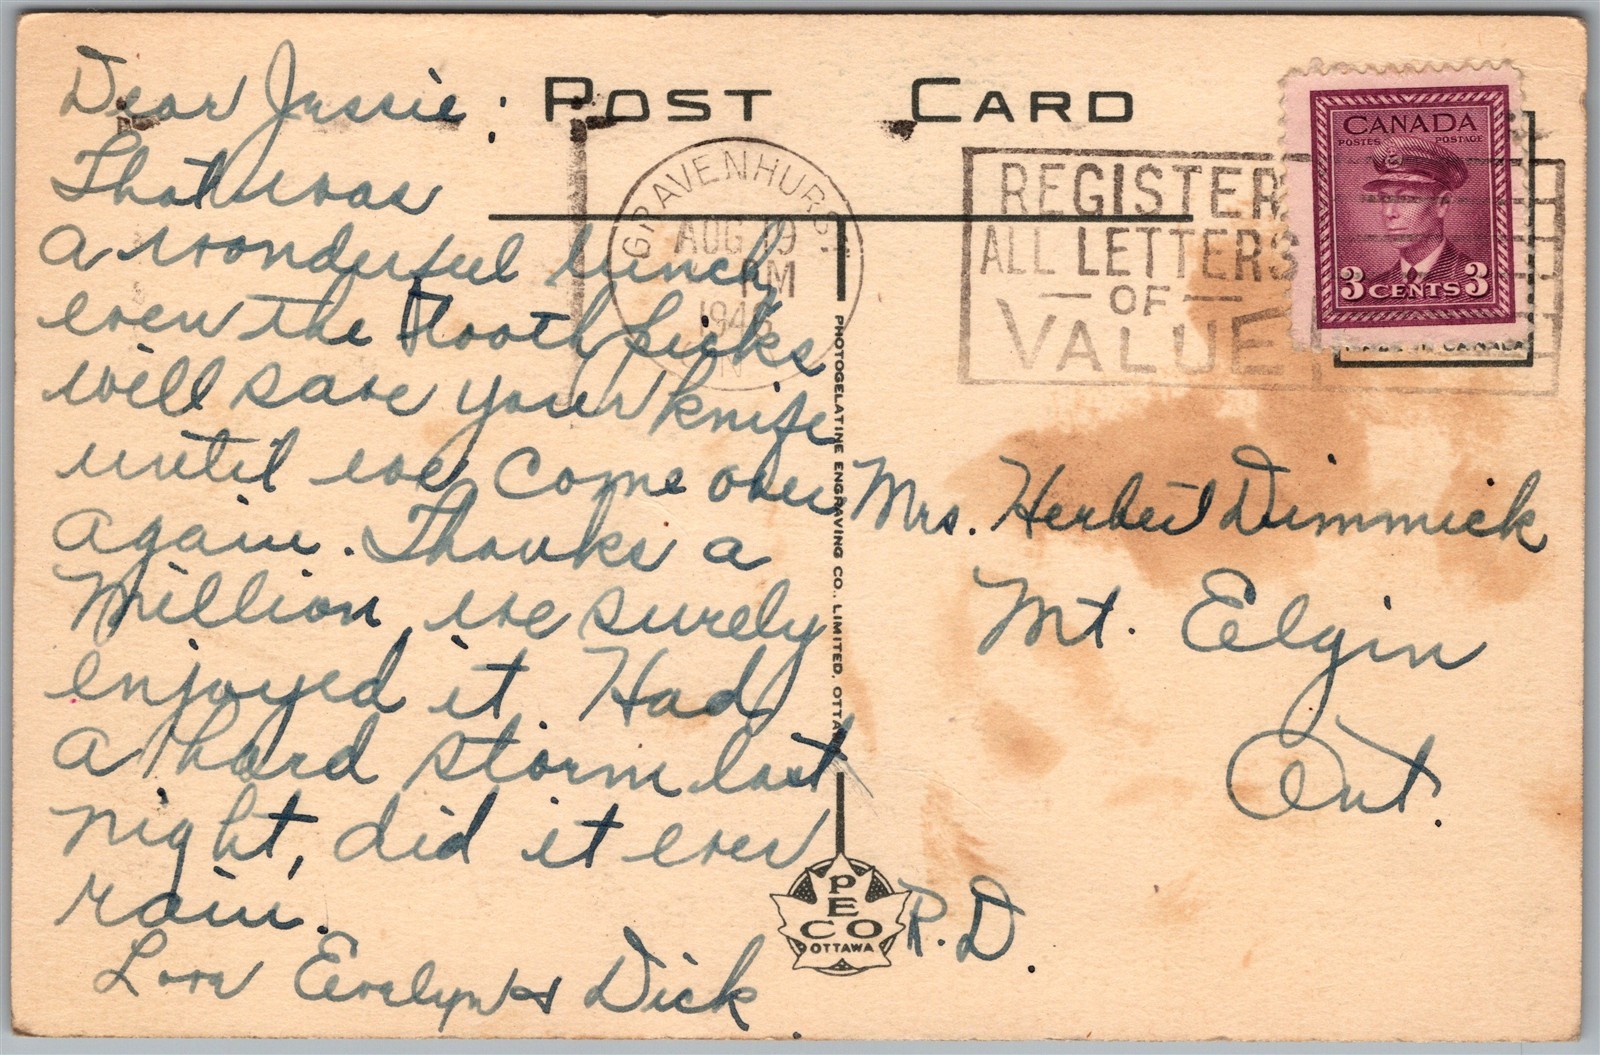 POST CARD
Dear Jessie:
That was
a wonderful lunch,
even the toothpicks
will save your knife
until we come over
again. Thanks a
Million, we surely
enjoyed it. Had
a hard storm last
night, did it ever
rain.
Love Evelyn & Dick
GRAVENHURST
AUG 19
PM
194
ON
REGISTER
ALL LETTERS
OF
VALUE
CANADA
POSTES POSTAGE
3 CENTS 3
MADE IN CANADA
PHOTOGELATINE ENGRAVING CO., LIMITED, OTTAWA
Mrs. Herbert Dimmick
Mt. Elgin
Ont.
R.D.
PECO
OTTAWA